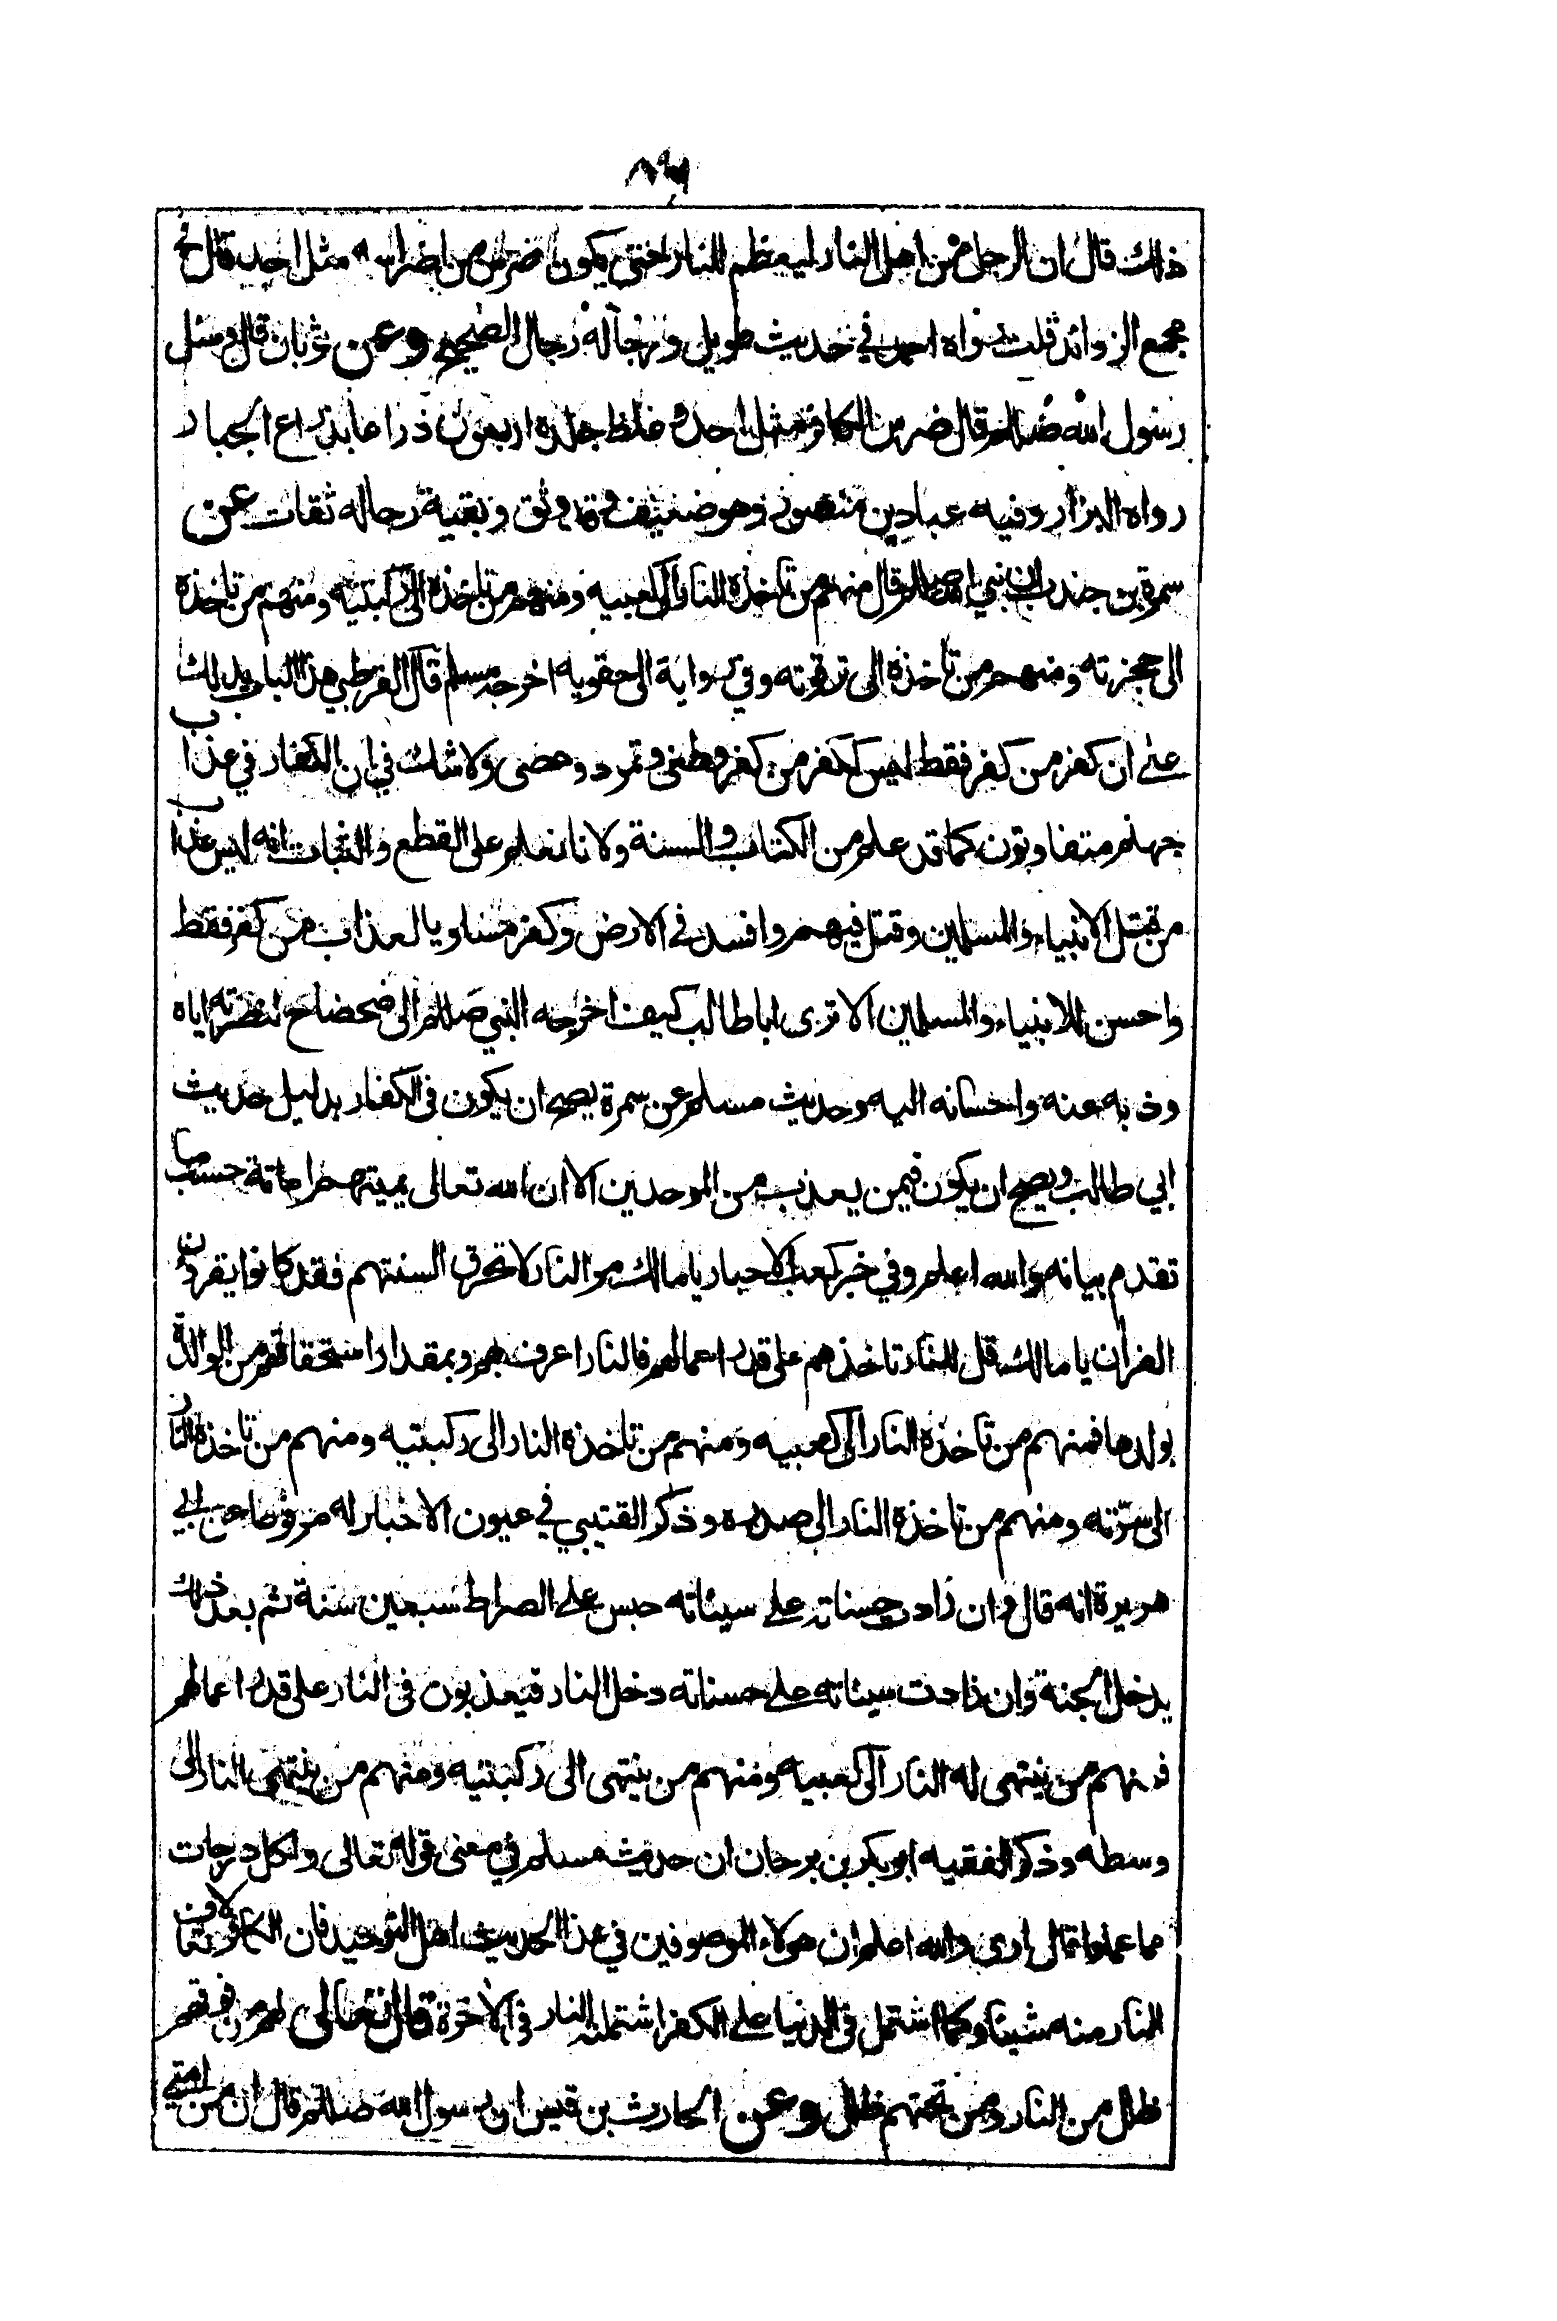 ذلك قال ان الرجل من اهل النار ليعظم للنار حتى يكون ضرس من اضراسه مثل احد قال في
مجمع الزوائد قلت رواه احمد في حديث طويل ورجاله رجال الصحيح وعن ثوبان قال وسئل
رسول الله صللم قال ضرس الكافر مثل احد وغلظ جلده اربعون ذراعا بذراع الجبار
رواه البزار وفيه عباد بن منصور وهو ضعيف وقد وثق وبقية رجاله ثقات عن
سمرة بن جندب ان نبي الله صللم قال منهم من تاخذه النار الى كعبيه ومنهم من تاخذه الى ركبتيه ومنهم من تاخذه
الى حجزته ومنهم من تاخذه الى ترقوته وفي رواية الى حقويه اخرجه مسلم قال القرطبي هذا الباب يدلك
على ان كفر من كفر فقط ليس ككفر من كفر وطغى وتمرد وعصى ولا شك في ان الكفار في عذاب
جهنم متفاوتون كما قد علم من الكتاب والسنة ولانا نعلم على القطع والثبات انه ليس عذاب
من قتل الانبياء والمسلمين وقتل فيهم وافسد في الارض وكفر مساويا لعذاب من كفر فقط
واحسن للانبياء والمسلمين الا ترى ابا طالب كيف اخرجه النبي صللم الى ضحضاح لنصرته اياه
وذبه عنه واحسانه اليه وحديث مسلم عن سمرة يصح ان يكون في الكفار بدليل حديث
ابي طالب ويصح ان يكون فيمن يعذب من الموحدين الا ان الله تعالى يميتهم اماتة حسب ما
تقدم بيانه والله اعلم وفي خبر كعب الاحبار يا مالك مر النار لا تحرق السنتهم فقد كانوا يقرؤن
القران يا مالك قل للنار تاخذهم على قدر اعمالهم فالنار اعرف بهم وبمقدار استحقاقهم من الوالدة
بولدها فمنهم من تاخذه النار الى كعبيه ومنهم من تاخذه النار الى ركبتيه ومنهم من تاخذه النار
الى سرّته ومنهم من تاخذه النار الى صدره وذكر القتيبي في عيون الاخبار له مرفوعا عن ابي
هريرة انه قال وان زادت حسناته على سيئاته حبس على الصراط سبعين سنة ثم بعد ذلك
يدخل الجنة وان زادت سيئاته على حسناته دخل النار فيعذبون في النار على قدر اعمالهم
فمنهم من ينتهى له النار الى كعبيه ومنهم من ينتهى الى ركبتيه ومنهم من ينتهى النار الى
وسطه وذكر الفقيه ابو بكر بن برجان ان حديث مسلم في معنى قوله تعالى ولكل درجات
مما عملوا قال ارى والله اعلم ان هولاء الموصوفين في هذا الحديث اهل التوحيد فان الكافر لا تعاف
النار منه شيئا وكما اشتمل في الدنيا على الكفر اشتملته النار في الاخرة قال تعالى لهم من فوقهم
ظلل من النار ومن تحتهم ظلل وعن الحارث بن قيس ان رسول الله صللم قال ان من امتي